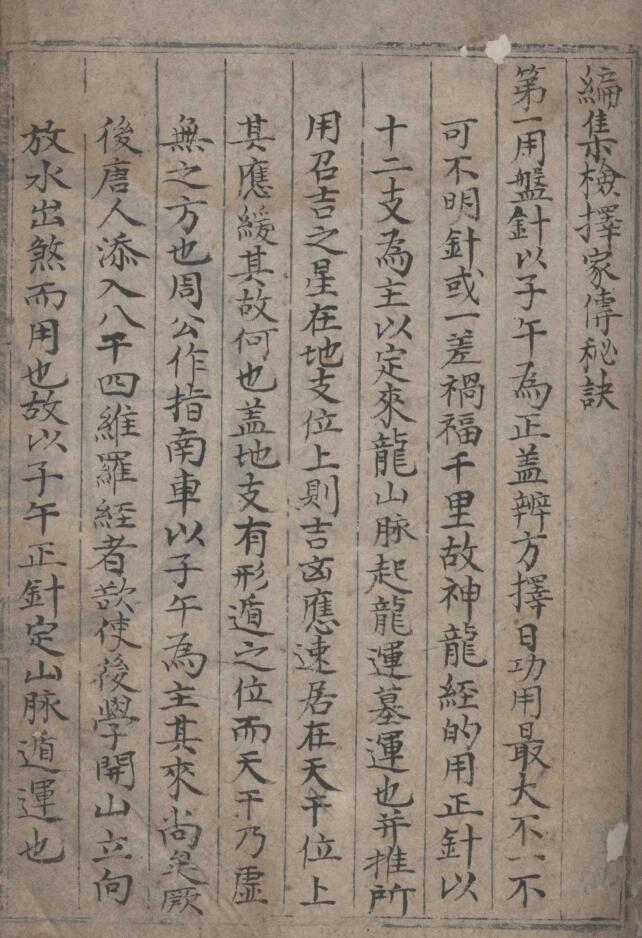 編集檢擇家傳秘訣
第一用盤針以子午為正盖辨方擇日功用最大不一不
可不明針或一差禍福千里故神龍経的用正針以
十二支為主以定來龍山脉起龍運墓運也并推所
用召吉之星在地支位上則吉凶應速居在天干位上
其應緩其故何也盖地支有形遁之位而天干乃虛
無之方也周公作指南車以子午為主其來尚矣厥
後唐人添入八干四維羅経者欲使後學開山立向
放水出煞而用也故以子午正針定山脉遁運也